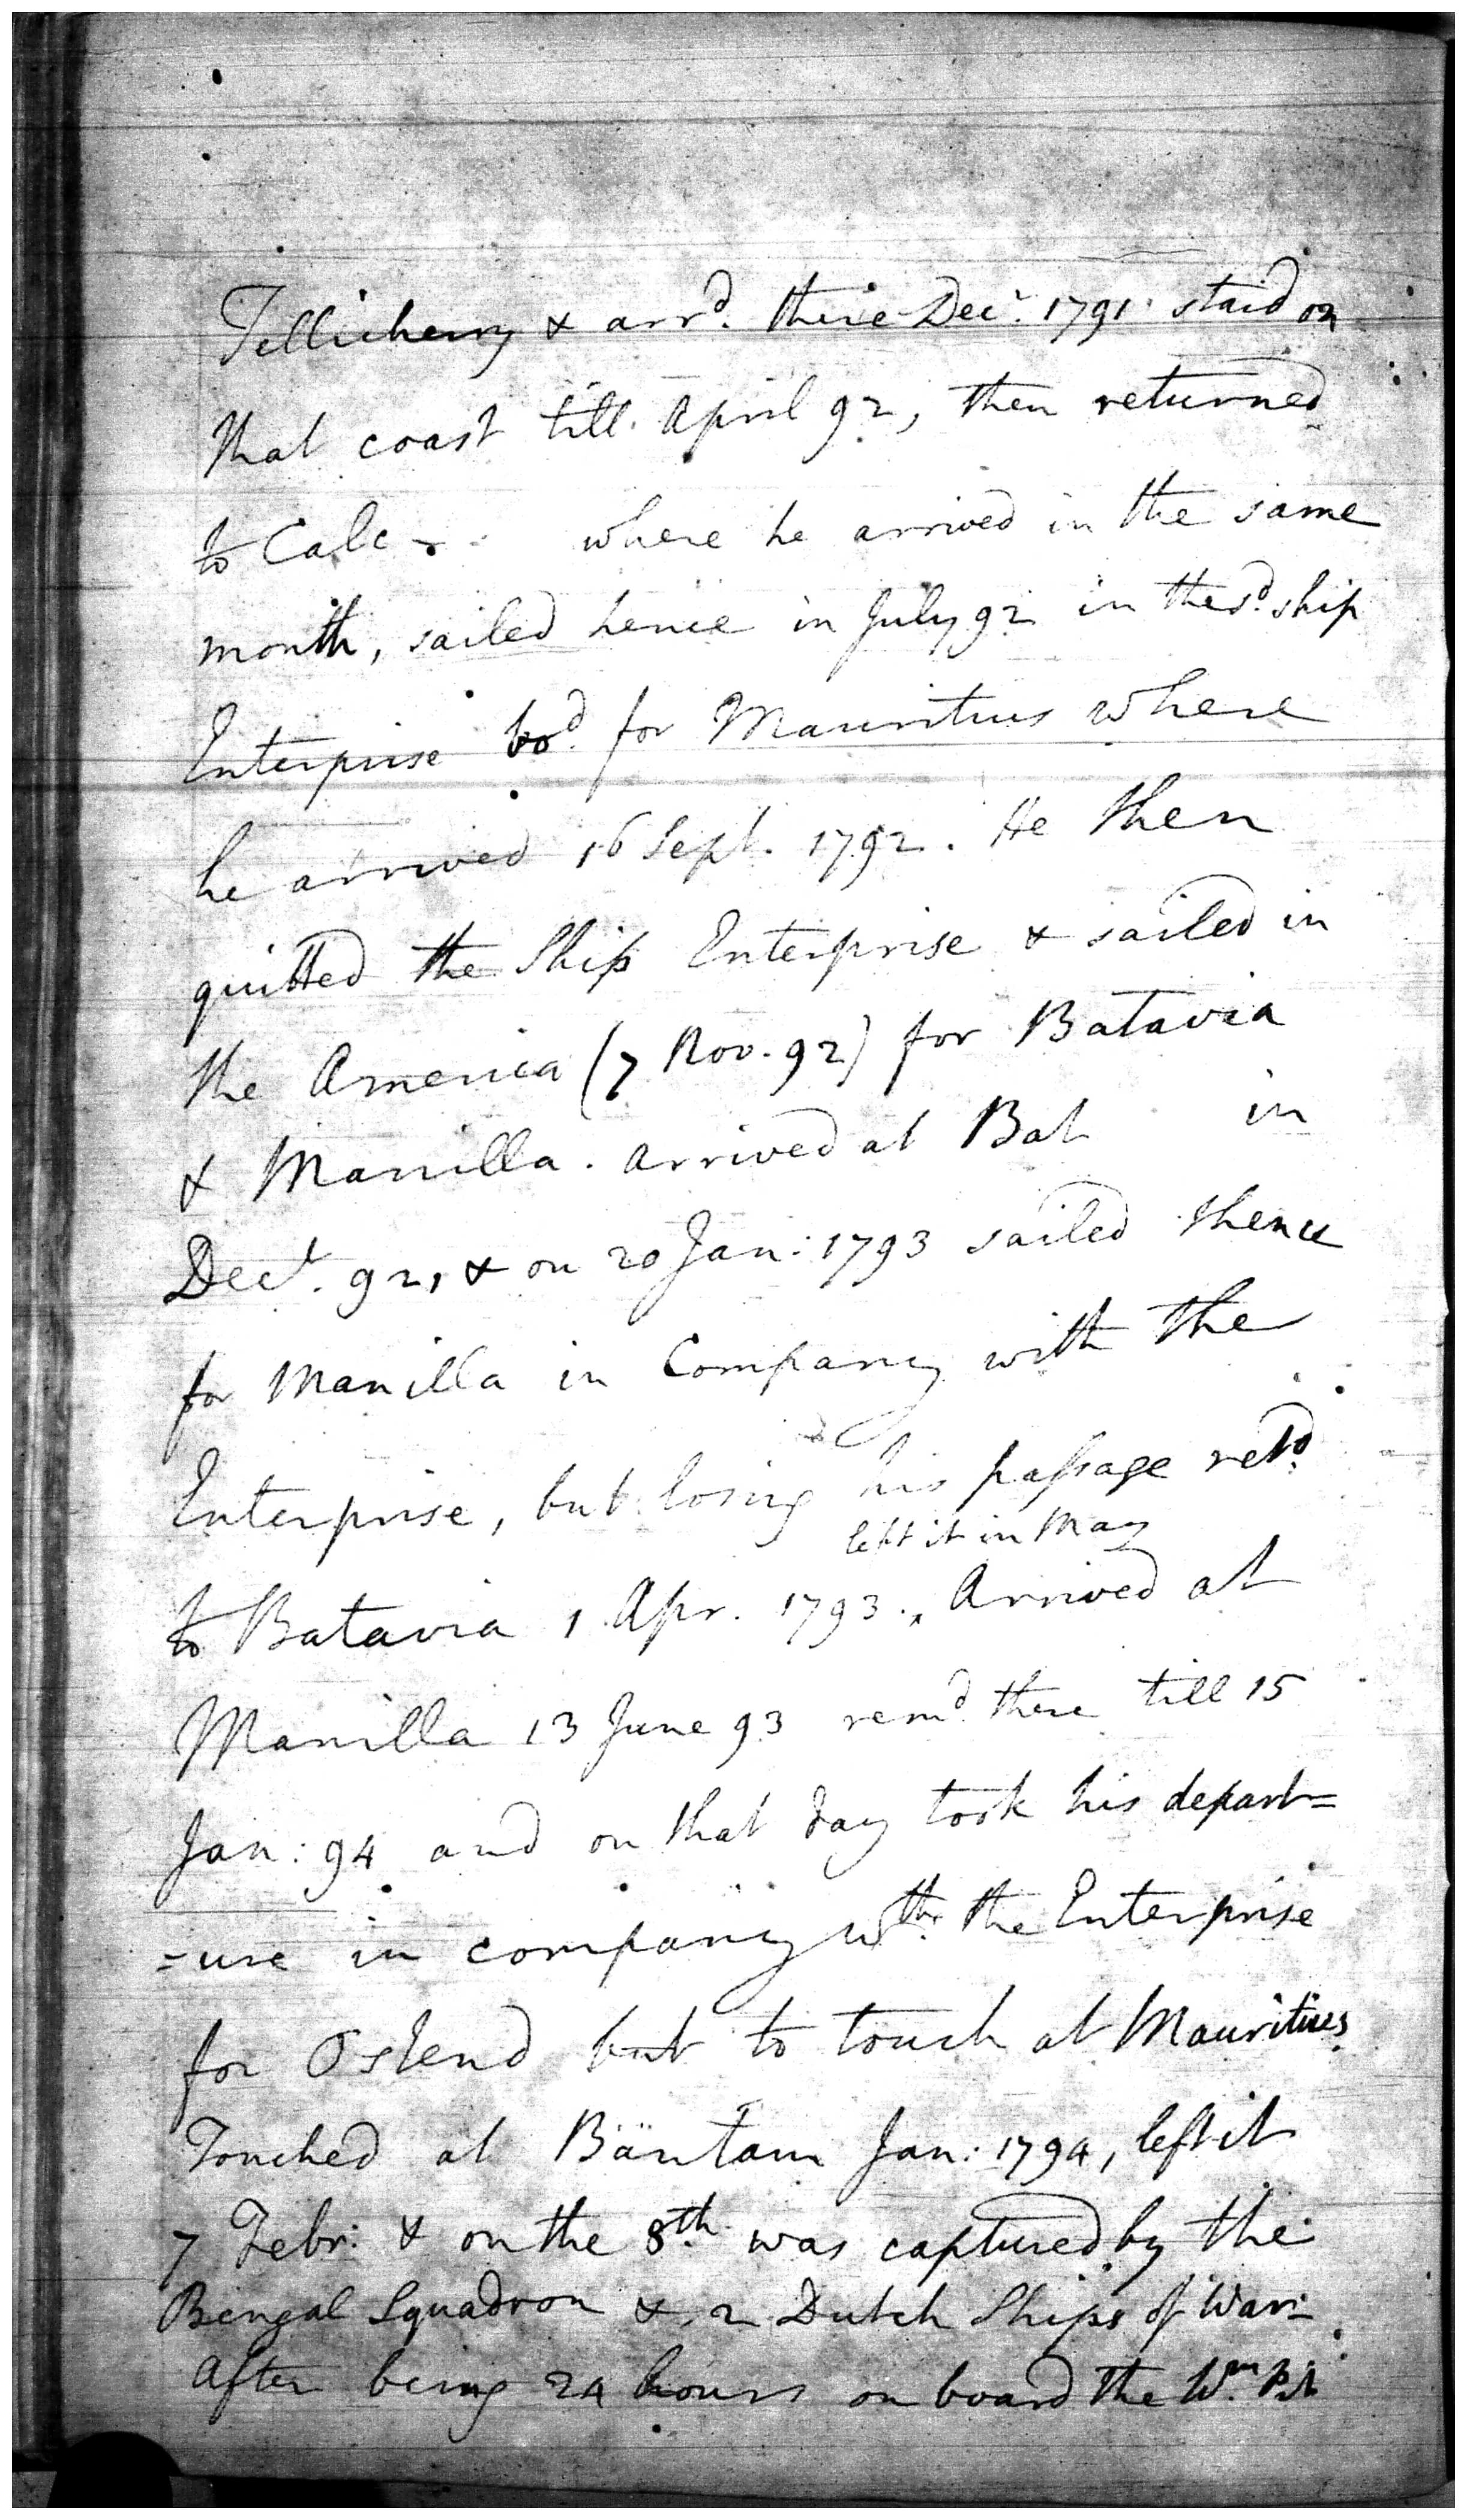 Tellicherry & arrd. there Decr. 1791 staid on
that coast till April 92, then returned
to Calc where he arrived in the same
month, sailed hence in July 92 in the sd. ship
Enterprise bod. for Mauritius where
he arrived 16 Sept. 1792. He then
quitted the Ship Enterprise & sailed in
the America (7 Nov. 92) for Batavia
& Manilla. arrived at Bat in
Decr. 92, & on 20 Jan: 1793 sailed thence
for Manilla in Company with the
Enterprise, but losing his passage retd.
left it in May
to Batavia 1 Apr. 1793. Arrived at
Manilla 13 June 93 remd. there till 15
Jan: 94 and on that day took his depart=
=ure in company wth. the Enterprise
for Ostend but to touch at Mauritius.
Touched at Bäntam Jan: 1794, left it
7 Febr: & on the 8th. was captured by the
Bengal Squadron & 2 Dutch Ships of War.
After being 24 hours on board the Wm. Pitt